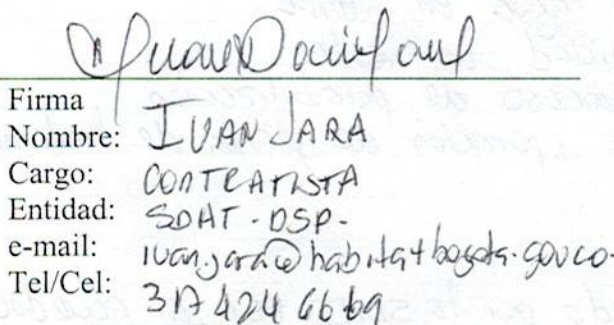 Firma
Nombre: IVAN JARA
Cargo: CONTRATISTA
Entidad: SDHT-DSP-
e-mail: ivan.jara@habitatbogota.gov.co.
Tel/Cel: 317 424 6669